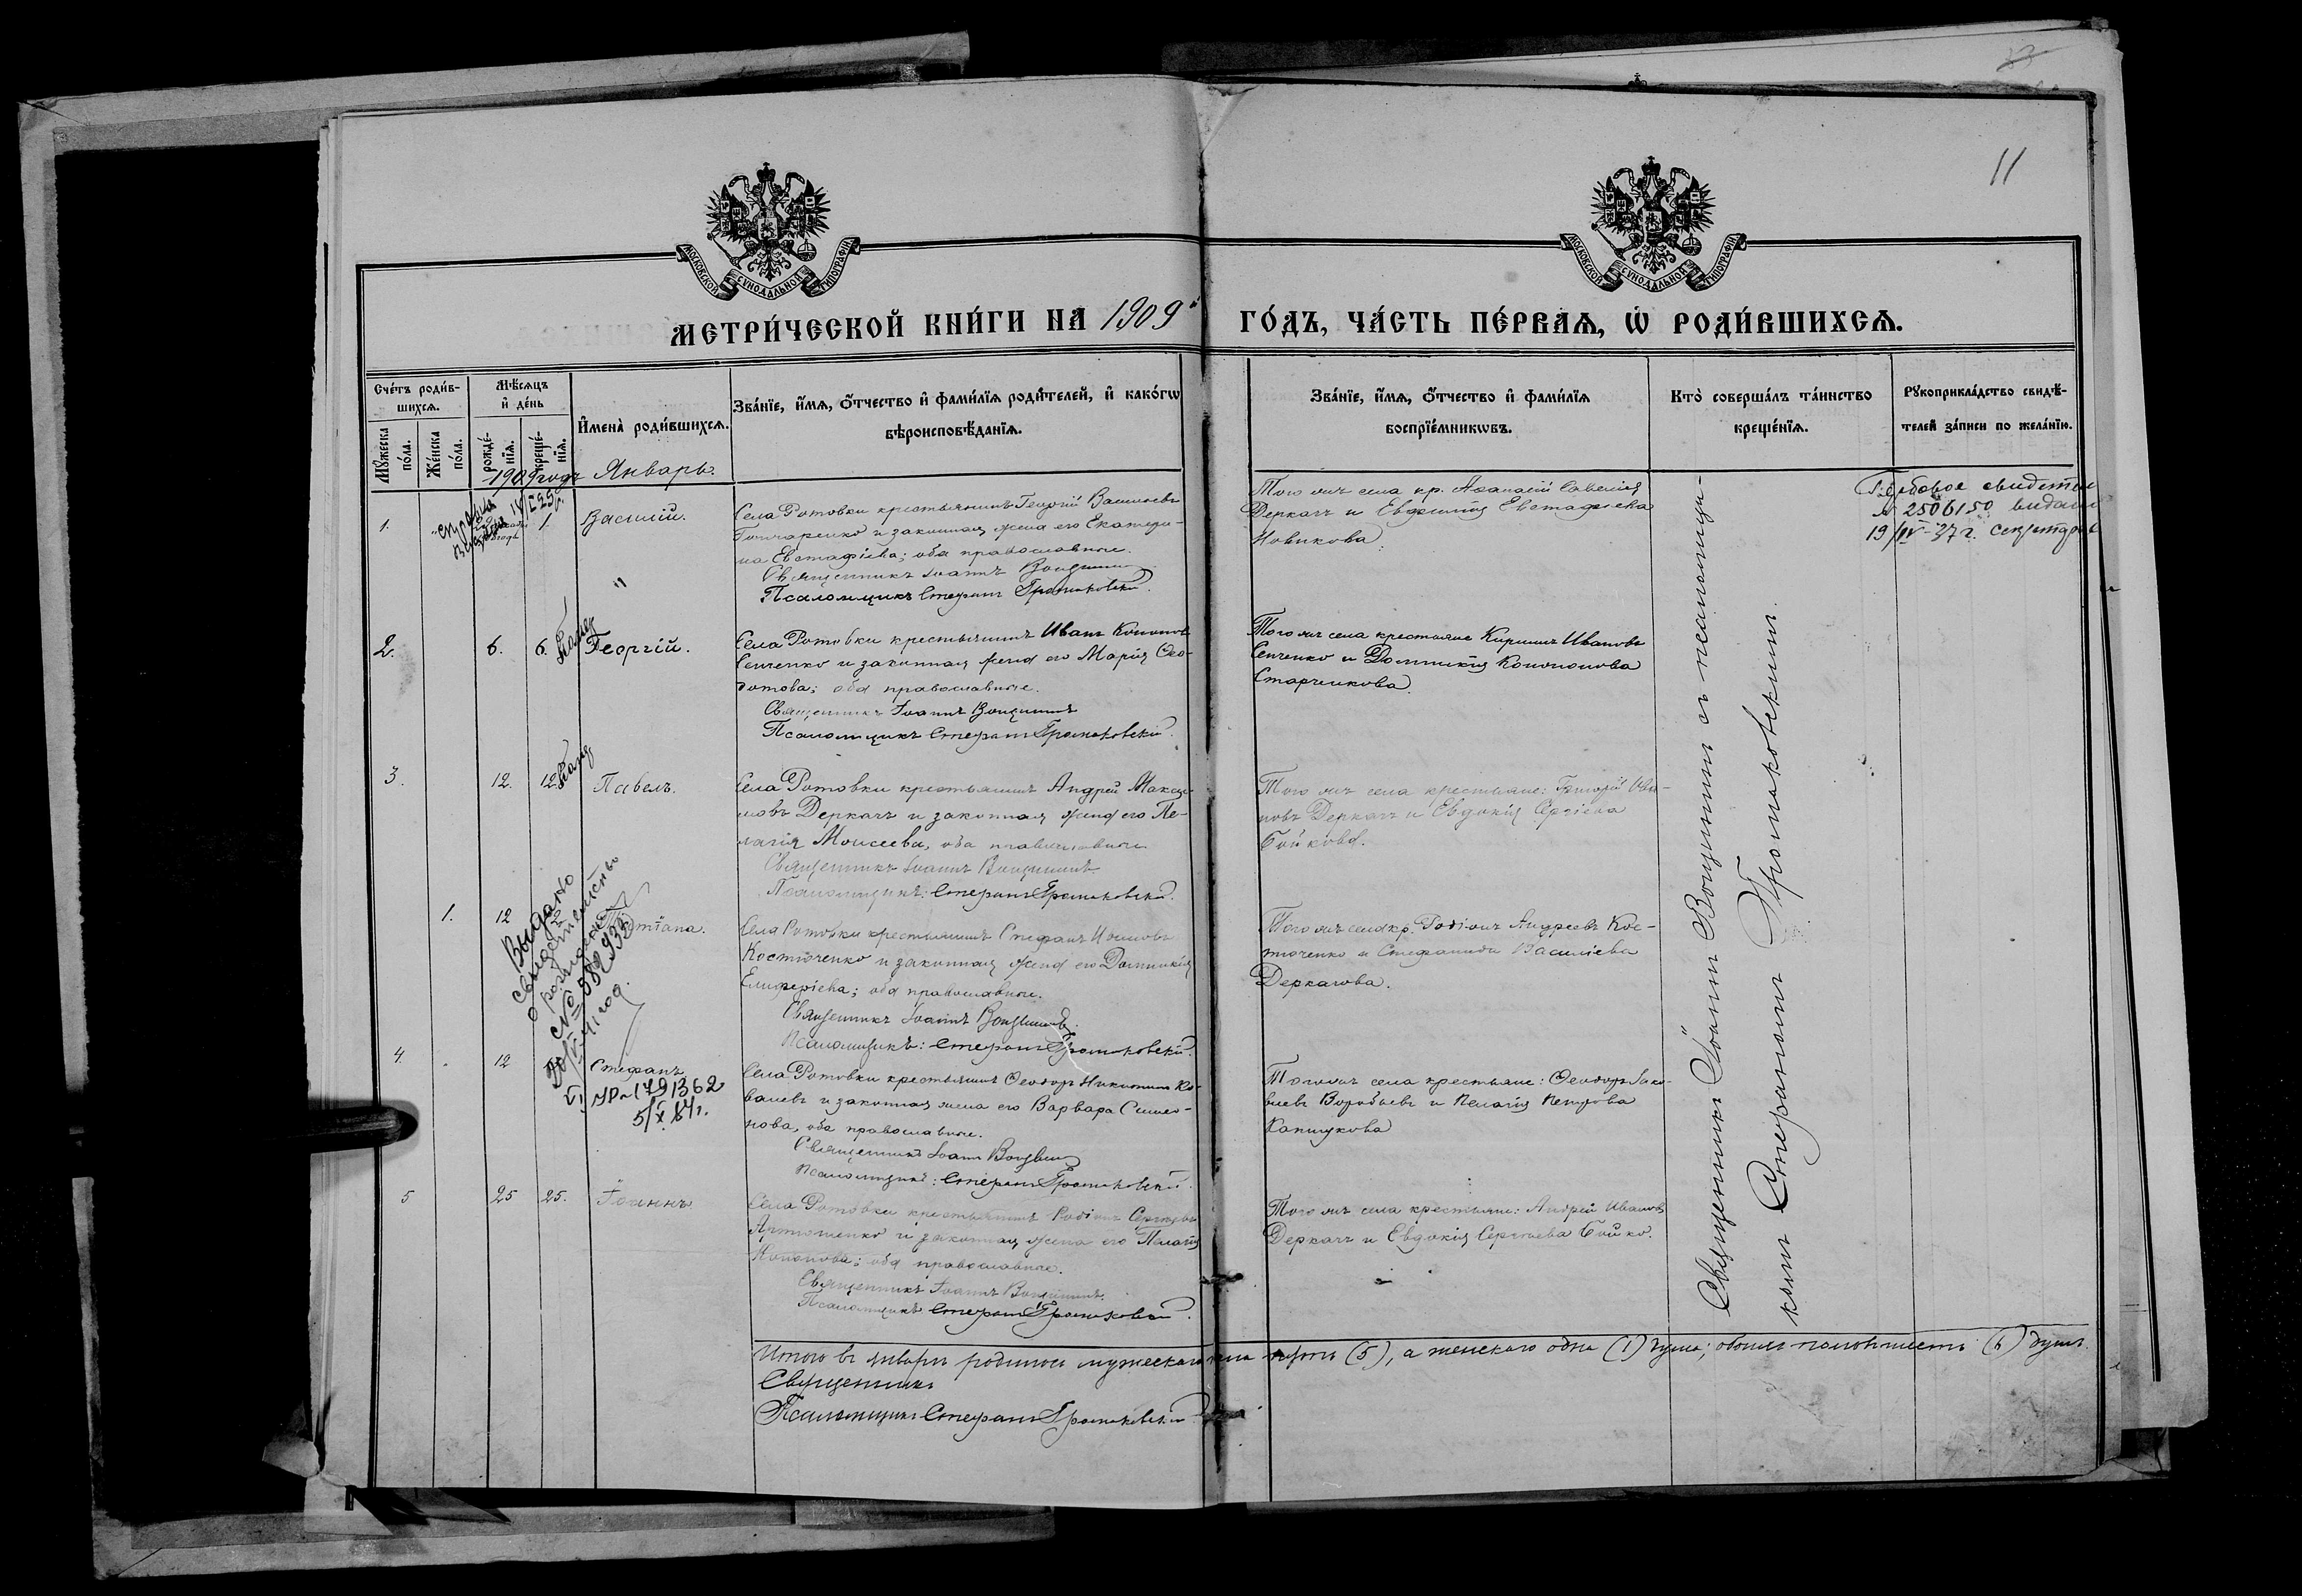 11
МОСКОВСКОЙ СѴНОДАЛЬНОЙ ТИПОГРАФІИ
МОСКОВСКОЙ СѴНОДАЛЬНОЙ ТИПОГРАФІИ
МЕТРИ́ЧЕСКОЙ КНИ́ГИ НА 1909й ГО́ДЪ, ЧА́СТЬ ПЕ́РВАѦ, Ѡ҆ РОДИ́ВШИХСѦ.
Сче́тъ роди́в-
шихсѧ.
Мꙋ́жеска по́ла.
Же́нска по́ла.
Мѣ́сѧцъ и҆ де́нь
рожде́-нїѧ.
креще́-нїѧ.
И҆мена̀ роди́вшихсѧ.
Зва́нїе, и҆́мѧ, ѻ҆́тчество и҆ фами́лїѧ роди́телей, и҆ како́гѡ
вѣроисповѣ́данїѧ.
Зва́нїе, и҆́мѧ, ѻ҆́тчество и҆ фами́лїѧ
воспрїе́мникѡвъ.
Кто̀ соверша́лъ та́инство
креще́нїѧ.
Рꙋкоприкла́дство свидѣ́-
телей за́писи по жела́нїю.
1909 годъ Январь.
1.
1.
Василій.
Села Ротовки крестьянинъ Георгій Васильевъ
Гончаренко и законная жена его Екатери-
на Евстафіева; оба православные.
Священникъ Іоаннъ
Псаломщикъ Стефанъ Громаковскій.
Того же села кр. Аѳанасій Савельевъ
Деркачъ и Евфимія Евстафіева
Новикова.
Гербовое свидетел
№ 2506150 выдано
19/IV-37 г.
2.
6.
6.
Георгій.
Села Ротовки крестьянинъ Иванъ Кононовъ
Сенченко и законная жена его Марія Ѳео-
дотова; оба православные.
Священникъ Іоаннъ
Псаломщикъ Стефанъ Громаковскій.
Того же села крестьяне Кириллъ Ивановъ
Сенченко и Домникія Кононова
Старчикова.
3.
12.
12
Павелъ.
Села Ротовки крестьянинъ Андрей Макси-
мовъ Деркачъ и законная жена его Пе-
лагія Моисеева, оба православные
Священникъ Іоаннъ
Псаломщикъ: Стефанъ Громаковскій.
Того же села крестьяне: Григорій Ива-
новъ Деркачъ и Евдокія Сергіева
Бойкова.
1.
12
Выдано
свидетельство
о рождении
Татіана.
Села Ротовки крестьянинъ Стефанъ
Костюченко и законная жена его Домникія
Елиферіева; оба православные.
Священникъ Іоаннъ
Псаломщикъ: Стефанъ Громаковскій.
Того же села кр. Родіонъ Андреевъ Кос-
тюченко и Стефанида Василіева
Деркачова.
4.
12
Стефанъ
№ 1791362
5/X 64 г.
Села Ротовки крестьянинъ Ѳеодоръ Никитинъ Ко-
валевъ и законная жена его Варвара Симео-
нова, оба православные.
Священникъ Іоаннъ
Псаломщикъ: Стефанъ Громаковскій.
Того же села крестьяне: Ѳеодоръ Іако-
влевъ Воробьевъ и Пелагія Петрова
5
25
25.
Іоаннъ.
Села Ротовки крестьянинъ Родіонъ Сергіевъ
Артюшенко и законная жена его Пелагія
Кононова; оба православные.
Священникъ Іоаннъ
Псаломщикъ Стефанъ Громаковскій.
Того же села крестьяне: Андрей Ивановъ
Деркачъ и Евдокія Сергѣева Бойко.
Священникъ Іоаннъ съ псаломщи-
комъ Стефаномъ Громаковскимъ.
Итого въ январѣ родилось мужескаго пола пять (5), а женскаго одна (1) душа; обоего пола шесть (6) душъ.
Священникъ
Псаломщикъ Стефанъ Громаковскій